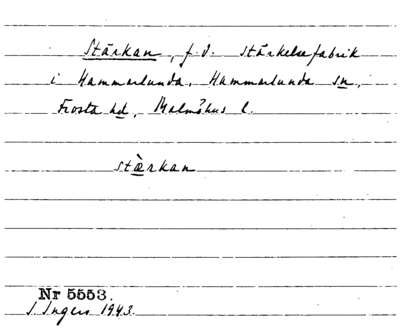 Stärkan, f.d. stärkelsefabrik
i Hammarlunda, Hammarlunda sn,
Frosta hd, Malmöhus l.
stæ̀rkan
Nr 5553.
I. Ingers 1943.